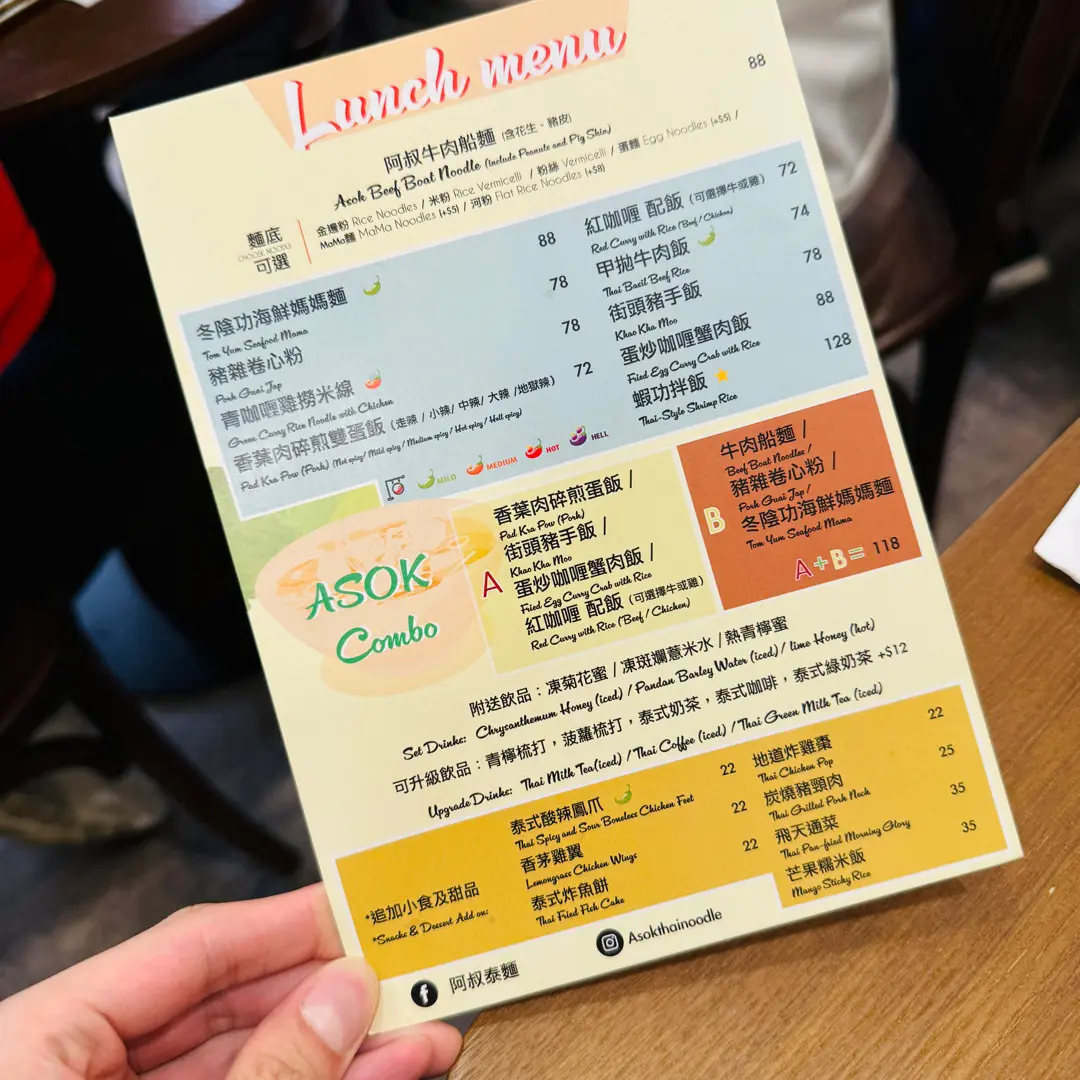 Lunch menu
阿叔牛肉船麵 (含花生、豬皮) 88
Asok Beef Boat Noodle (include Peanuts and Pig Skin)
麵底
CHOOSE NOODLE
可選
金邊粉 Rice Noodles / 米粉 Rice Vermicelli / 粉絲 Vermicelli / 蛋麵 Egg Noodles (+$5) /
MaMa麵 MaMa Noodles (+$5) / 河粉 Flat Rice Noodles (+$8)
冬陰功海鮮媽媽麵 88
Tom Yum Seafood Mama
豬雜卷心粉 78
Pork Guai Jap
青咖喱雞撈米線 78
Green Curry Rice Noodle with Chicken
香葉肉碎煎雙蛋飯 (走辣 / 小辣/ 中辣/ 大辣 /地獄辣) 72
Pad Kra Pow (Pork) (Not spicy/ Mild spicy / Medium spicy / Hot spicy / Hell spicy)
紅咖喱 配飯 (可選擇牛或雞) 72
Red Curry with Rice (Beef / Chicken)
甲拋牛肉飯 74
Thai Basil Beef Rice
街頭豬手飯 78
Khao Kha Moo
蛋炒咖喱蟹肉飯 88
Fried Egg Curry Crab with Rice
蝦功拌飯 128
Thai-Style Shrimp Rice
MILD MEDIUM HOT HELL
ASOK
Combo
A
香葉肉碎煎蛋飯 /
Pad Kra Pow (Pork)
街頭豬手飯 /
Khao Kha Moo
蛋炒咖喱蟹肉飯 /
Fried Egg Curry Crab with Rice
紅咖喱 配飯 (可選擇牛或雞)
Red Curry with Rice (Beef / Chicken)
B
牛肉船麵 /
Beef Boat Noodles /
豬雜卷心粉 /
Pork Guai Jap /
冬陰功海鮮媽媽麵
Tom Yum Seafood Mama
A+B= 118
附送飲品：凍菊花蜜 / 凍斑斕薏米水 / 熱青檸蜜
Set Drinks: Chrysanthemum Honey (iced) / Pandan Barley Water (iced) / lime Honey (hot)
可升級飲品：青檸梳打，菠蘿梳打，泰式奶茶，泰式咖啡，泰式綠奶茶 +$12
Upgrade Drinks: Thai Milk Tea(iced) / Thai Coffee (iced) / Thai Green Milk Tea (iced)
*追加小食及甜品
*Snacks & Dessert Add on:
泰式酸辣鳳爪 22
Thai Spicy and Sour Boneless Chicken Feet
香茅雞翼 22
Lemongrass Chicken Wings
泰式炸魚餅 22
Thai Fried Fish Cake
地道炸雞棗 22
Thai Chicken Pop
炭燒豬頸肉 25
Thai Grilled Pork Neck
飛天通菜 35
Thai Pan-fried Morning Glory
芒果糯米飯 35
Mango Sticky Rice
阿叔泰麵
Asokthainoodle